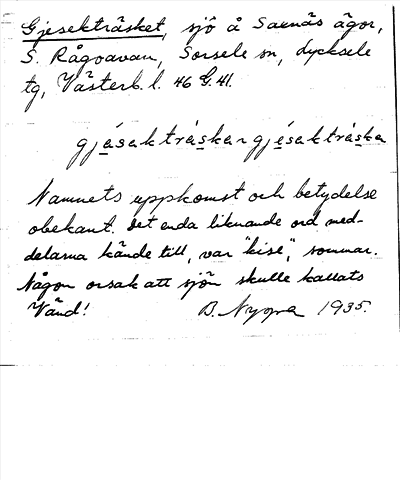 Gjesekträsket, sjö å Saxnäs ägor,
S. Rågoavan, Sorsele sn, Lycksele
tg, Västerb. l. 46 G. 41.
gjásakträskan gjésakträska
Namnets uppkomst och betydelse
obekant. Det enda liknande ord med-
delarna kände till, var "kise", sommar.
Någon orsak att sjön skulle kallats
Vänd! B. Nygra 1935.